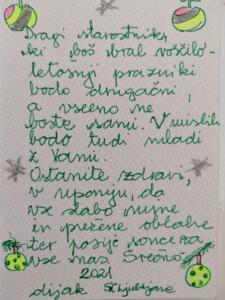 Dragi starostnik,
ki boš bral voščilo-
letošnji prazniki
bodo drugačni,
a vseeno ne
boste sami. V mislih
bodo tudi mladi
z Vami.
Ostanite zdravi,
v upanju, da
vse slabo mine
in prežene oblake
ter posije sonce za
vse nas. Srečno
2021
dijak Ljubljane